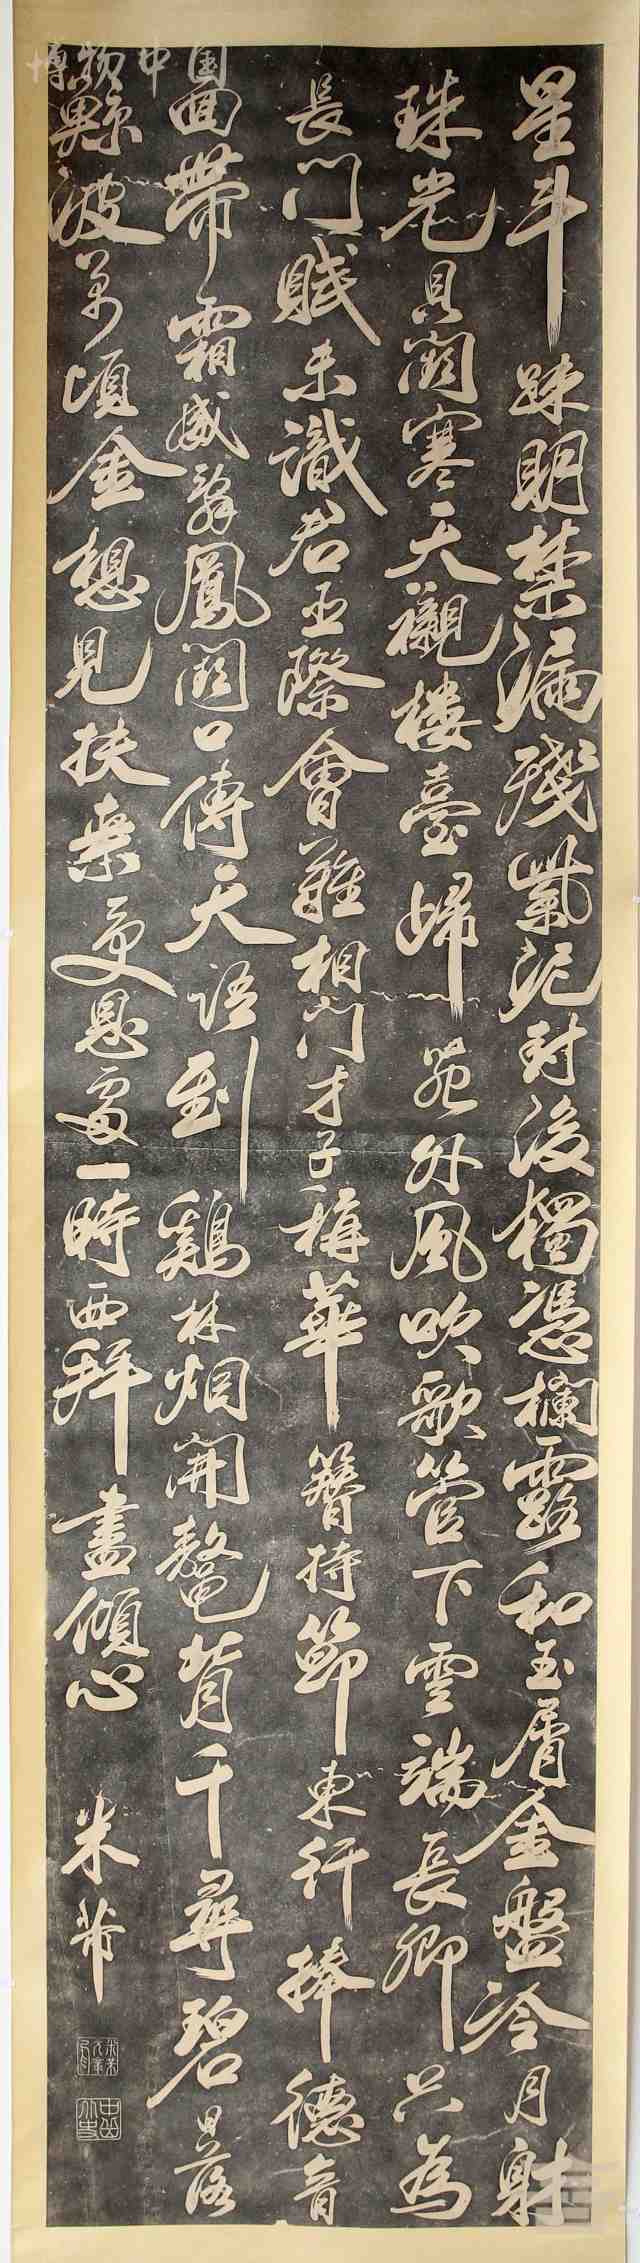 博物中国
星斗疎明禁漏殘紫泥封後獨憑欄露和玉屑金盤冷月射
珠光貝闕寒天襯樓臺歸苑外風吹歌管下雲端長卿只為
長門賦未識君王際會難相門才子稱華簪持節東行捧德音
面帶霜威辭鳳闕口傳天語到鷄林烟開鰲背千尋碧日落
鯨波萬頃金想見扶桑受恩處一時西拜盡傾心
米芾